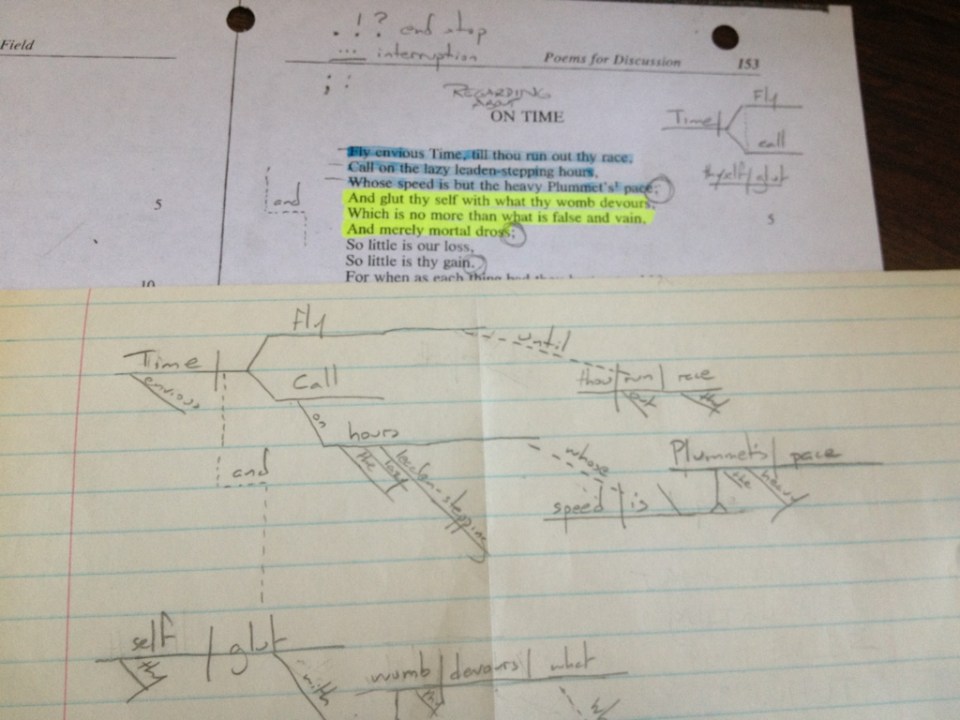 . ! ? end stop
... interruption
; :
Field
Poems for Discussion 153
REGARDING
ABOUT
ON TIME
Time Fly
call
thyself glut
Fly envious Time, till thou run out thy race,
Call on the lazy leaden-stepping hours,
Whose speed is but the heavy Plummet's¹ pace;
and
And glut thy self with what thy womb devours,
5
5
Which is no more than what is false and vain,
And merely mortal dross;
So little is our loss,
So little is thy gain.
For when as each thing bad
10
Fly
until
Time
envious
Call
thou run race
out thy
on
hours
the lazy leaden-stepping
whose
Plummet's pace
the heavy
speed is
and
self glut
thy
with
womb devours what
thy